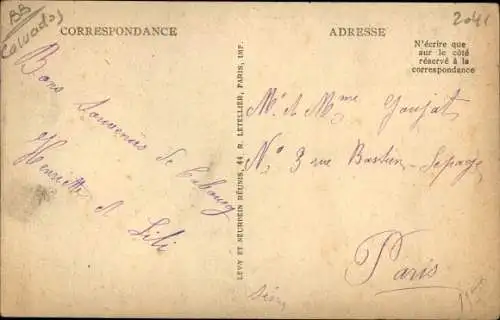 BB
Calvados
CORRESPONDANCE
Bons Souvenirs
de Cabourg
Henriette et Lili
LÉVY ET NEURDEIN RÉUNIS, 44 R. LETELLIER, PARIS, IMP.
ADRESSE
2041
N'écrire que
sur le côté
réservé à la
correspondance
Mr et Mme Goujat
No 3 rue Bastien-Lepage
Paris